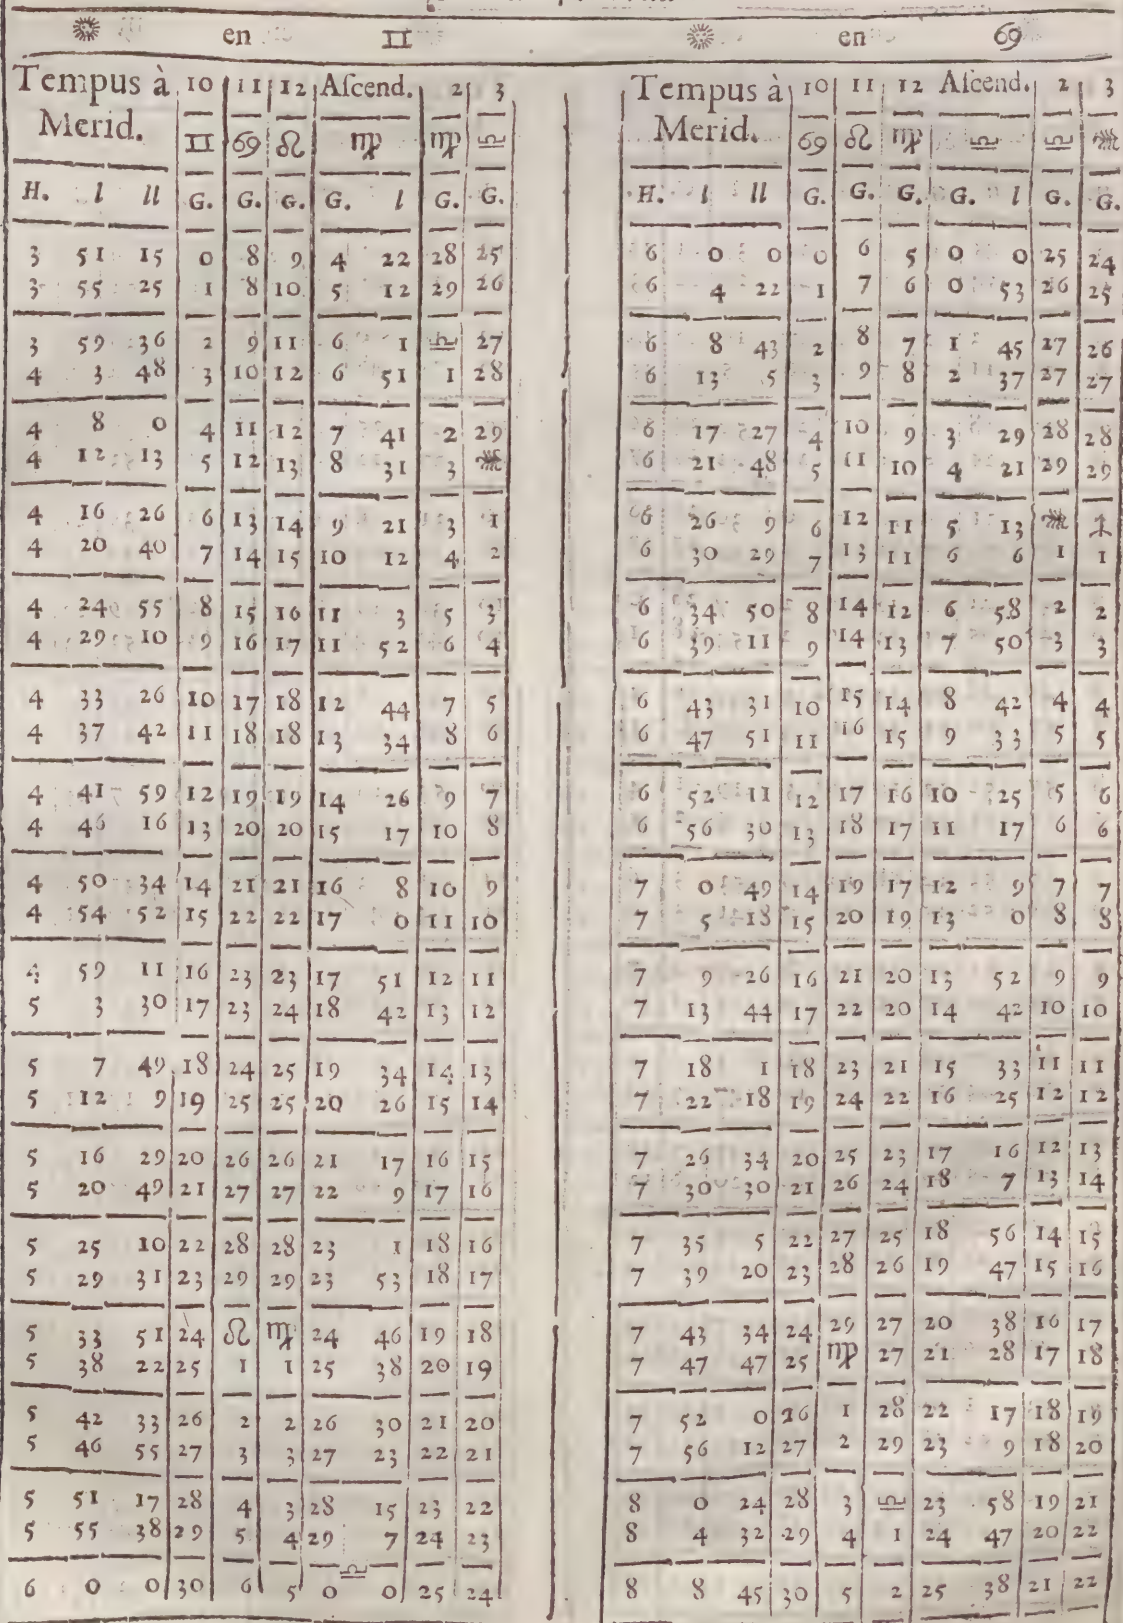 ☉ en ♊
Tempus à 10 11 12 Aſcend. 2 3
Merid. ♊ ♋ ♌ ♍ ♍ ♎
H. l ll G. G. G. G. l G. G.
3 51 15 0 8 9 4 22 28 25
3 55 25 1 8 10 5 12 29 26
3 59 36 2 9 11 6 1 ♎ 27
4 3 48 3 10 12 6 51 1 28
4 8 0 4 11 12 7 41 2 29
4 12 13 5 12 13 8 31 3 ♏
4 16 26 6 13 14 9 21 3 1
4 20 40 7 14 15 10 12 4 2
4 24 55 8 15 16 11 3 5 3
4 29 10 9 16 17 11 52 6 4
4 33 26 10 17 18 12 44 7 5
4 37 42 11 18 18 13 34 8 6
4 41 59 12 19 19 14 26 9 7
4 46 16 13 20 20 15 17 10 8
4 50 34 14 21 21 16 8 10 9
4 54 52 15 22 22 17 0 11 10
4 59 11 16 23 23 17 51 12 11
5 3 30 17 23 24 18 42 13 12
5 7 49 18 24 25 19 34 14 13
5 12 9 19 25 25 20 26 15 14
5 16 29 20 26 26 21 17 16 15
5 20 49 21 27 27 22 9 17 16
5 25 10 22 28 28 23 1 18 16
5 29 31 23 29 29 23 53 18 17
5 33 51 24 ♌ ♍ 24 46 19 18
5 38 22 25 1 1 25 38 20 19
5 42 33 26 2 2 26 30 21 20
5 46 55 27 3 3 27 23 22 21
5 51 17 28 4 3 28 15 23 22
5 55 38 29 5 4 29 7 24 23
♎
6 0 0 30 6 5 0 0 25 24
☉ en ♋
Tempus à 10 11 12 Aſcend. 2 3
Merid. ♋ ♌ ♍ ♎ ♎ ♏
H. l ll G. G. G. G. l G. G.
6 0 0 0 6 5 0 0 25 24
6 4 22 1 7 6 0 53 26 25
6 8 43 2 8 7 1 45 27 26
6 13 5 3 9 8 2 37 27 27
6 17 27 4 10 9 3 29 28 28
6 21 48 5 11 10 4 21 29 29
6 26 9 6 12 11 5 13 ♏ ♐
6 30 29 7 13 11 6 6 1 1
6 34 50 8 14 12 6 58 2 2
6 39 11 9 14 13 7 50 3 3
6 43 31 10 15 14 8 42 4 4
6 47 51 11 16 15 9 33 5 5
6 52 11 12 17 16 10 25 5 6
6 56 30 13 18 17 11 17 6 6
7 0 49 14 19 17 12 9 7 7
7 5 18 15 20 19 13 0 8 8
7 9 26 16 21 20 13 52 9 9
7 13 44 17 22 20 14 42 10 10
7 18 1 18 23 21 15 33 11 11
7 22 18 19 24 22 16 25 12 12
7 26 34 20 25 23 17 16 12 13
7 30 30 21 26 24 18 7 13 14
7 35 5 22 27 25 18 56 14 15
7 39 20 23 28 26 19 47 15 16
7 43 34 24 29 27 20 38 16 17
7 47 47 25 ♍ 27 21 28 17 18
7 52 0 26 1 28 22 17 18 19
7 56 12 27 2 29 23 9 18 20
8 0 24 28 3 ♎ 23 58 19 21
8 4 32 29 4 1 24 47 20 22
8 8 45 30 5 2 25 38 21 22